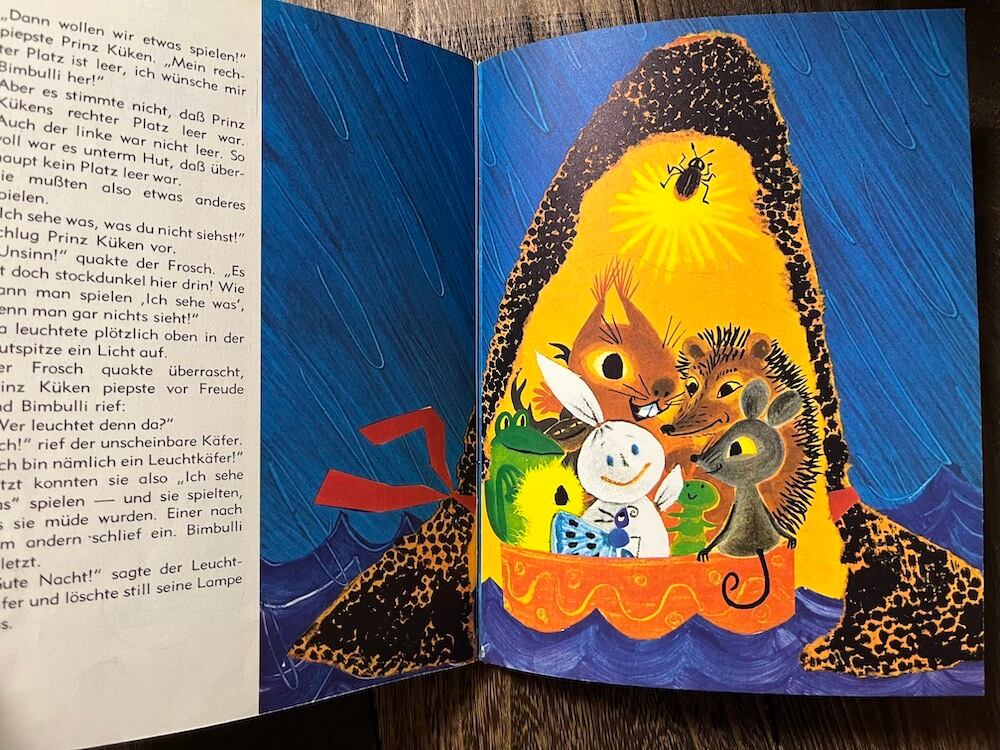 „Dann wollen wir etwas spielen!“
piepste Prinz Küken. „Mein rech-
ter Platz ist leer, ich wünsche mir
Bimbulli her!“
Aber es stimmte nicht, daß Prinz
Kükens rechter Platz leer war.
Auch der linke war nicht leer. So
voll war es unterm Hut, daß über-
haupt kein Platz leer war.
ie mußten also etwas anderes
pielen.
Ich sehe was, was du nicht siehst!“
chlug Prinz Küken vor.
Unsinn!“ quakte der Frosch. „Es
t doch stockdunkel hier drin! Wie
ann man spielen ‚Ich sehe was‘,
enn man gar nichts sieht!“
a leuchtete plötzlich oben in der
utspitze ein Licht auf.
er Frosch quakte überrascht,
rinz Küken piepste vor Freude
nd Bimbulli rief:
Wer leuchtet denn da?“
ch!“ rief der unscheinbare Käfer.
ch bin nämlich ein Leuchtkäfer!“
tzt konnten sie also „Ich sehe
as“ spielen — und sie spielten,
s sie müde wurden. Einer nach
m andern schlief ein. Bimbulli
letzt.
Gute Nacht!“ sagte der Leucht-
fer und löschte still seine Lampe
s.